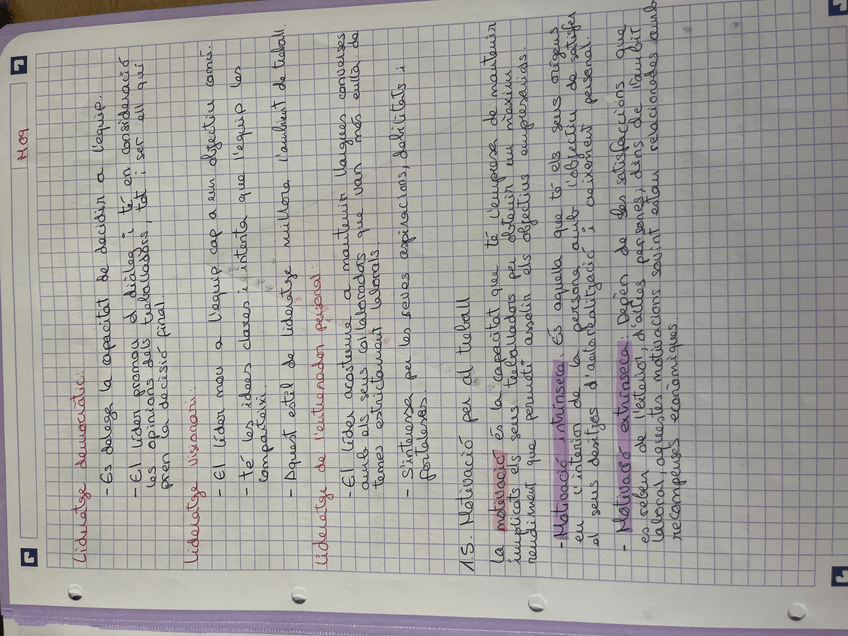 M09
Lideratge democràtic:
- Es delega la capacitat de decidir a l'equip.
- El líder promou el diàleg i té en consideració
les opinions dels treballadors, tot i ser ell qui
pren la decisió final.
Lideratge visionari:
- El líder mou a l'equip cap a un objectiu comú.
- Té les idees clares i intenta que l'equip les
comparteixi.
- Aquest estil de lideratge millora l'ambient de treball.
Lideratge de l'entrenador personal:
- El líder acostuma a mantenir llargues converses
amb els seus col·laboradors que van més enllà de
temes estrictament laborals.
- S'interessa per les seves aspiracions, debilitats i
fortaleses.
1.5. Motivació per al treball
La motivació és la capacitat que té l'empresa de mantenir
implicats els seus treballadors per obtenir un màxim
rendiment que permeti assolir els objectius empresarials.
- Motivació intrínseca. És aquella que té els seus orígens
en l'interior de la persona amb l'objectiu de satisfer
el seus desitjos d'autorealització i creixement personal.
- Motivació extrínseca: Depèn de les satisfaccions que
es reben de l'exterior, d'altres persones, dins de l'àmbit
laboral, aquestes motivacions sovint estan relacionades amb
recompenses econòmiques.